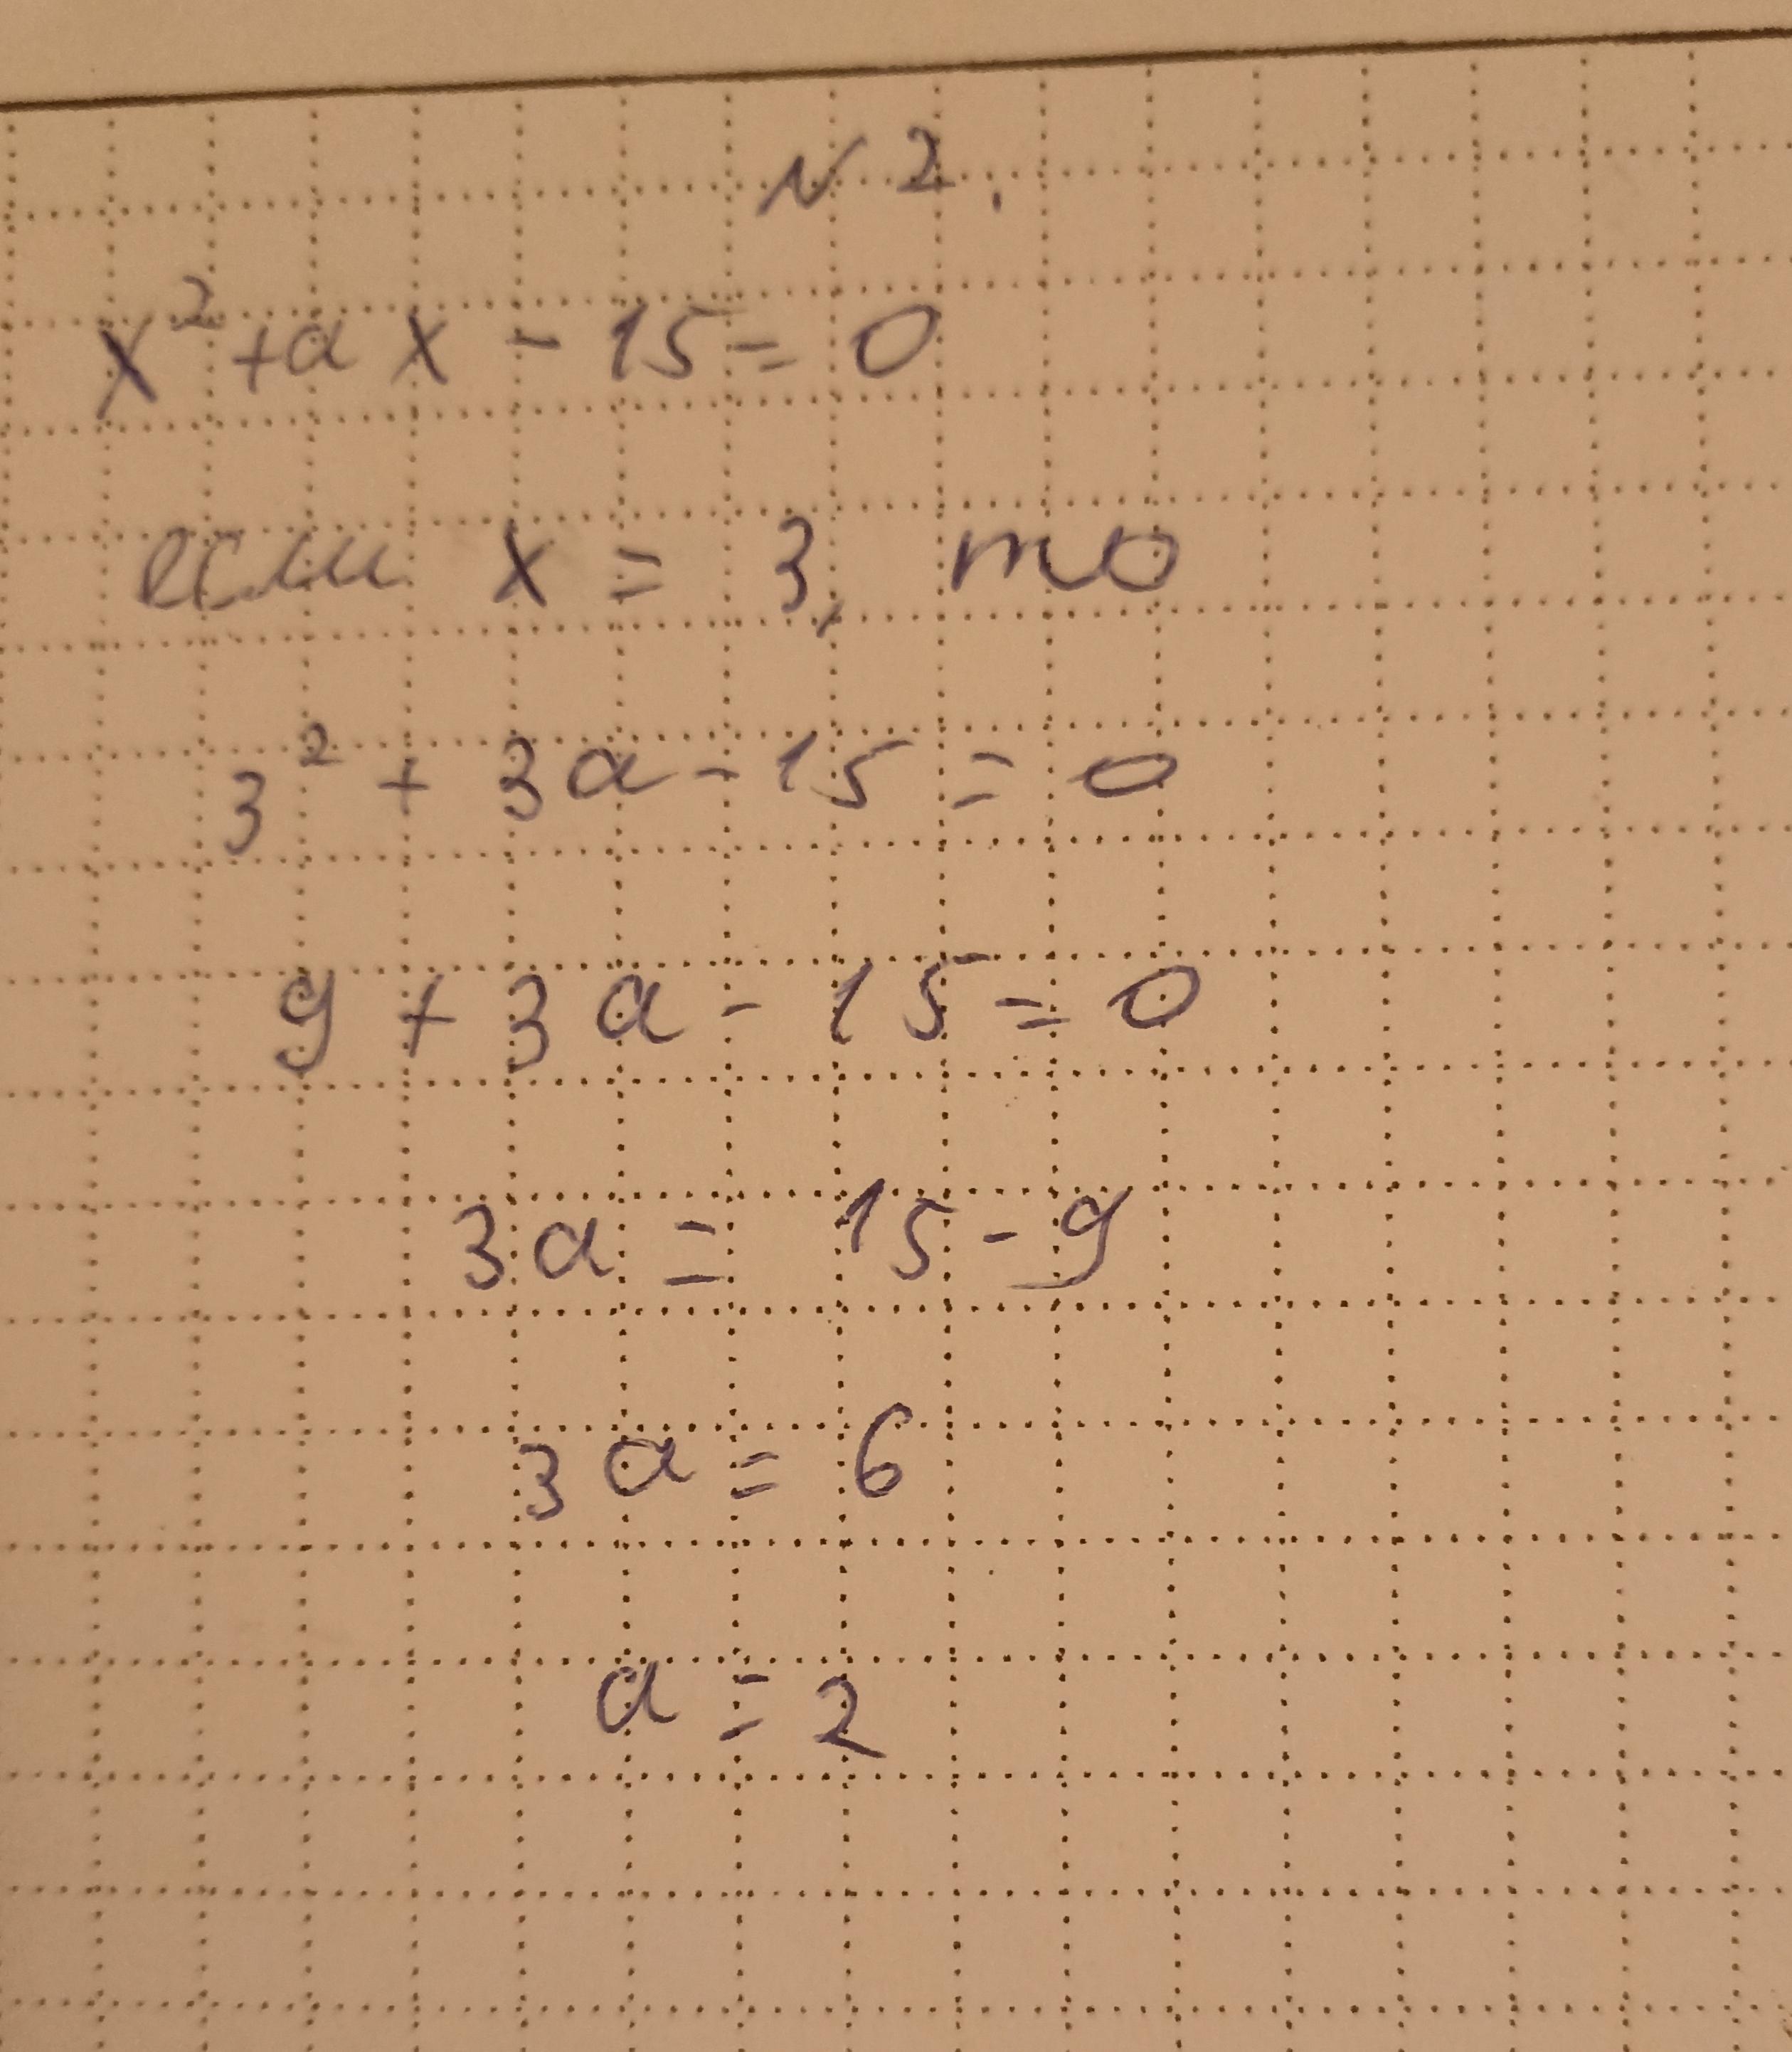 N 2.
x² + a x - 15 = 0
если x = 3, то
3² + 3a - 15 = 0
9 + 3a - 15 = 0
3a = 15 - 9
3a = 6
a = 2